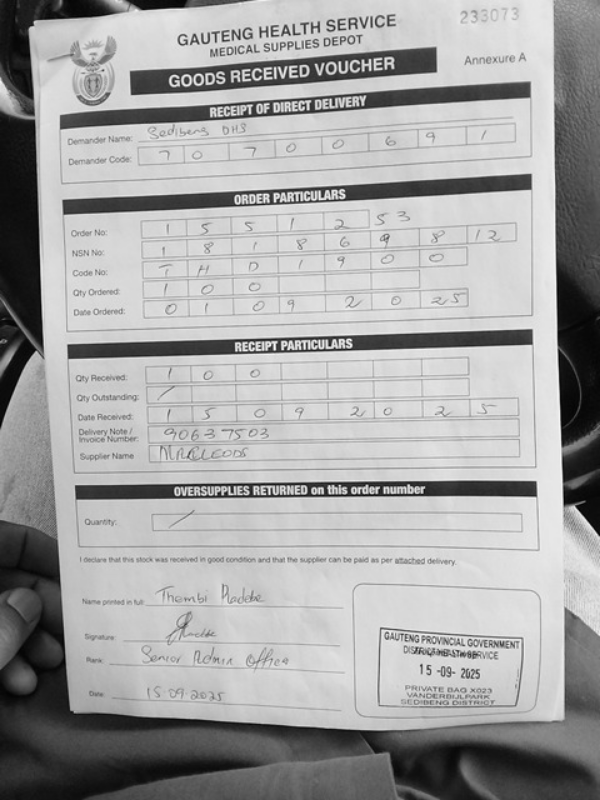 233073
GAUTENG HEALTH SERVICE
MEDICAL SUPPLIES DEPOT
GOODS RECEIVED VOUCHER
Annexure A
RECEIPT OF DIRECT DELIVERY
Demander Name: Sedibeng DHS
Demander Code: 7 0 7 0 0 6 9 1
ORDER PARTICULARS
Order No: 1 5 5 1 2 5 3
NSN No: 1 8 1 8 6 9 8 12
Code No: T H D 1 9 0 0
Qty Ordered: 1 0 0
Date Ordered: 0 1 09 2 0 25
RECEIPT PARTICULARS
Qty Received: 1 0 0
Qty Outstanding: /
Date Received: 1 5 0 9 2 0 2 5
Delivery Note /
Invoice Number: 90637503
Supplier Name MACLEODS
OVERSUPPLIES RETURNED on this order number
Quantity: /
I declare that this stock was received in good condition and that the supplier can be paid as per attached delivery.
Name printed in full: Thembi
Signature:
Rank: Senior Admin Officer
Date: 15 09 2025
GAUTENG PROVINCIAL GOVERNMENT
DISTRICT HEALTH SERVICE
15 -09- 2025
PRIVATE BAG X023
VANDERBIJLPARK
SEDIBENG DISTRICT